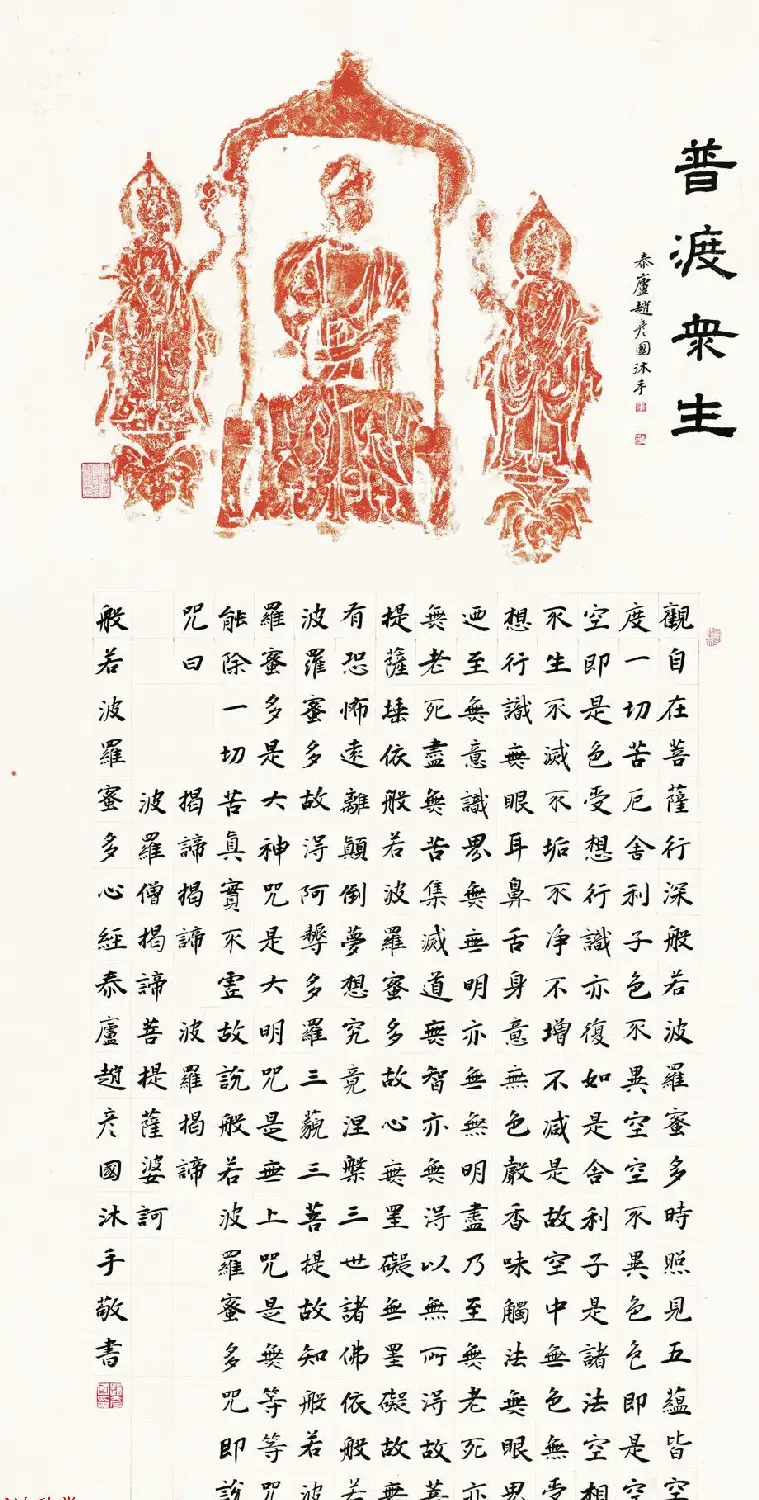 普渡衆生
泰廬趙彥國沐手
觀自在菩薩行深般若波羅蜜多時照見五蘊皆空
度一切苦厄舍利子色不異空空不異色色即是空
空即是色受想行識亦復如是舍利子是諸法空相
不生不滅不垢不净不增不減是故空中無色無受
想行識無眼耳鼻舌身意無色聲香味觸法無眼界
迺至無意識界無無明亦無無明盡乃至無老死亦
無老死盡無苦集滅道無智亦無得以無所得故菩
提薩埵依般若波羅蜜多故心無罣礙無罣礙故無
有恐怖遠離顛倒夢想究竟涅槃三世諸佛依般若
波羅蜜多故得阿耨多羅三藐三菩提故知般若波
羅蜜多是大神咒是大明咒是無上咒是無等等咒
能除一切苦眞實不虛故說般若波羅蜜多咒即說
咒曰 揭諦揭諦 波羅揭諦
波羅僧揭諦菩提薩婆訶
般若波羅蜜多心經泰廬趙彥國沐手敬書